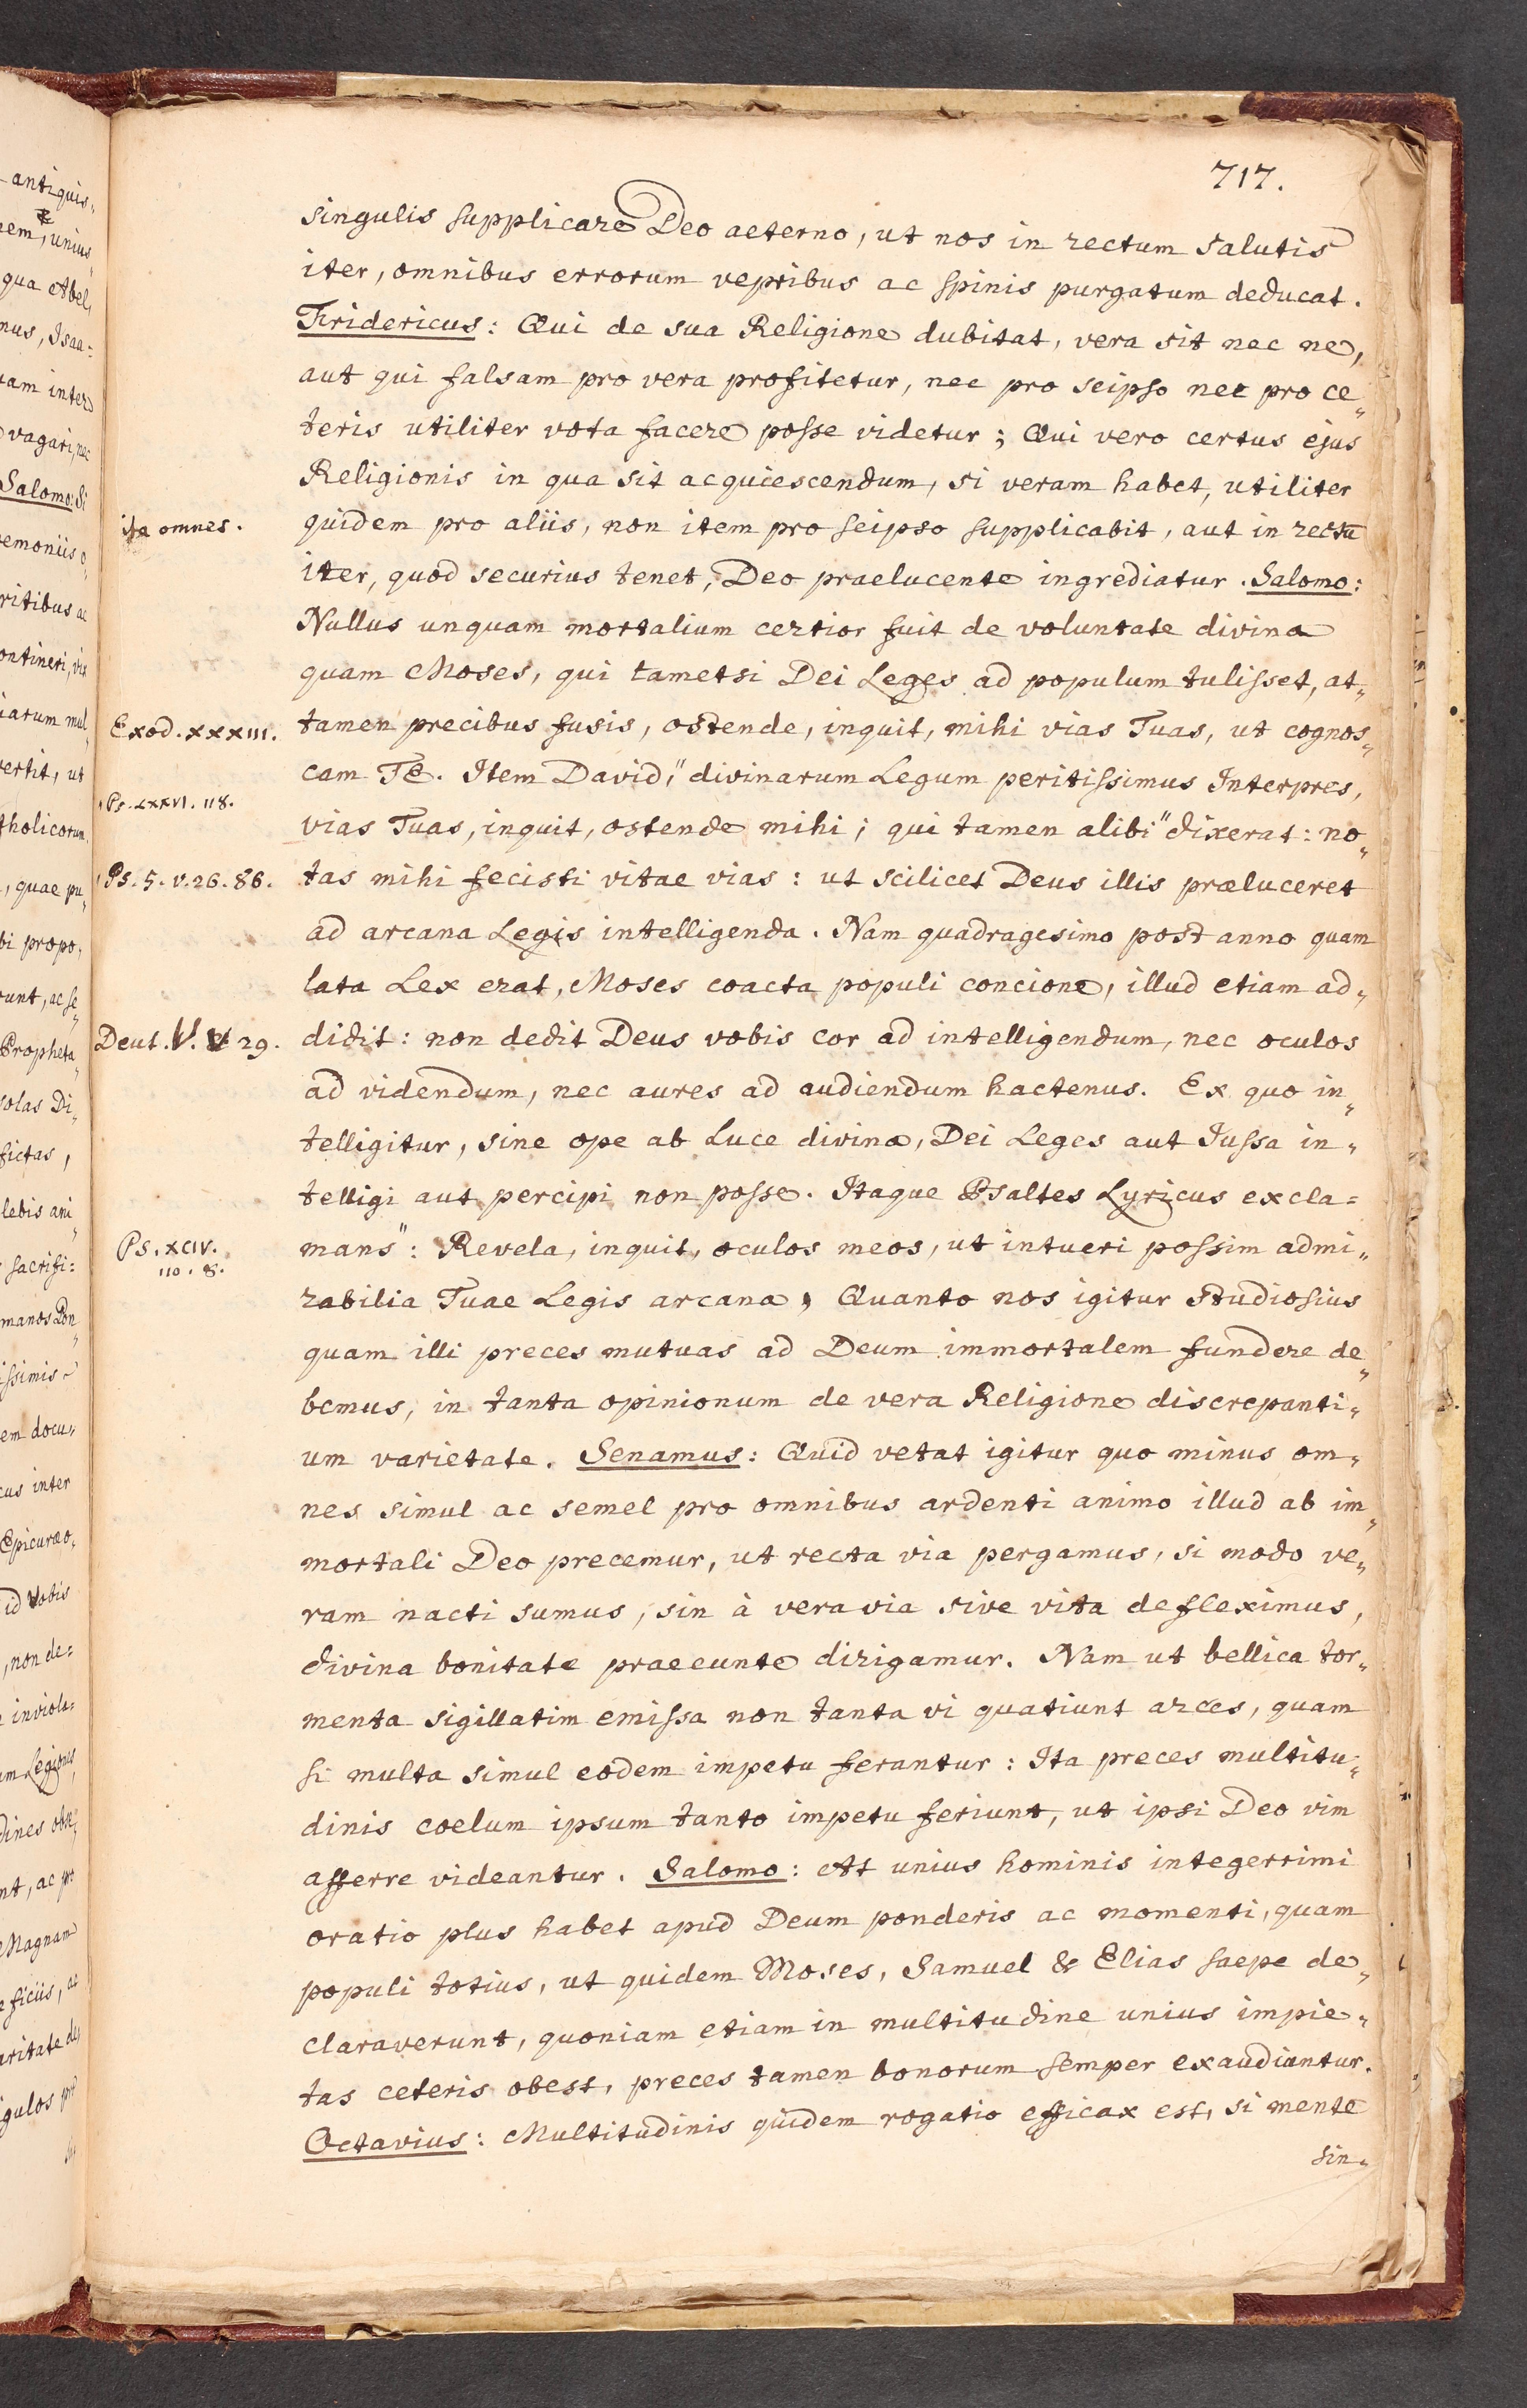 717.
singulis supplicare Deo aeterno, ut nos in rectum salutis
iter, omnibus errorum vepribus ac spinis purgatum deducat.
Fridericus: Qui de sua Religione dubitat, vera sit nec ne,
aut qui falsam pro vera profitetur, nec pro seipso nec pro ce„
teris utiliter vota facere posse videtur; Qui vero certus ejus
Religionis in qua sit acquiescendum, si veram habet, utiliter
ita omnes.
quidem pro aliis, non item pro seipso supplicabit, aut in rectū
iter, quod securius tenet, Deo praelucente ingrediatur. Salomo:
Nullus unquam mortalium certior fuit de voluntate divina
quam Moses, qui tametsi Dei Leges ad populum tulisset, at„
Exod. XXXIII.
tamen precibus fusis, ostende, inquit, mihi vias Tuas, ut cognos„
cam Te. Item David," divinarum Legum peritissimus Interpres,
Ps. LXXVI. 118.
vias Tuas, inquit, ostende mihi; qui tamen alibi" dixerat: no„
Ps. 5. v. 26. 86.
tas mihi fecisti vitae vias: ut scilicet Deus illis praeluceret
ad arcana Legis intelligenda. Nam quadragesimo post anno quam
lata Lex erat, Moses coacta populi concione, illud etiam ad„
Deut. V. V 29.
didit: non dedit Deus vobis cor ad intelligendum, nec oculos
ad videndum, nec aures ad audiendum hactenus. Ex quo in„
telligitur, sine ope ab Luce divina, Dei Leges aut Jussa in„
telligi aut percipi non posse. Itaque Psaltes Lyricus excla=
Ps. XCIV.
110. 8.
mans": Revela, inquit, oculos meos, ut intueri possim admi„
rabilia Tuae Legis arcana, Quanto nos igitur studiosius
quam illi preces mutuas ad Deum immortalem fundere de„
bemus, in tanta opinionum de vera Religione discrepanti„
um varietate. Senamus: Quid vetat igitur quo minus om„
nes simul ac semel pro omnibus ardenti animo illud ab im„
mortali Deo precemur, ut recta via pergamus, si modo ve„
ram nacti sumus, sin à vera via sive vita defleximus,
divina bonitate praeeunte dirigamur. Nam ut bellica tor„
menta sigillatim emissa non tanta vi quatiunt arces, quam
si multa simul eodem impetu ferantur: Ita preces multitu„
dinis coelum ipsum tanto impetu feriunt, ut ipsi Deo vim
afferre videantur. Salomo: At unius hominis integerrimi
oratio plus habet apud Deum ponderis ac momenti, quam
populi totius, ut quidem Moses, Samuel & Elias saepe de„
claraverunt, quoniam etiam in multitudine unius impie„
tas ceteris obest, preces tamen bonorum semper exaudiuntur.
Octavius: Multitudinis quidem rogatio efficax est, si mente
sin„